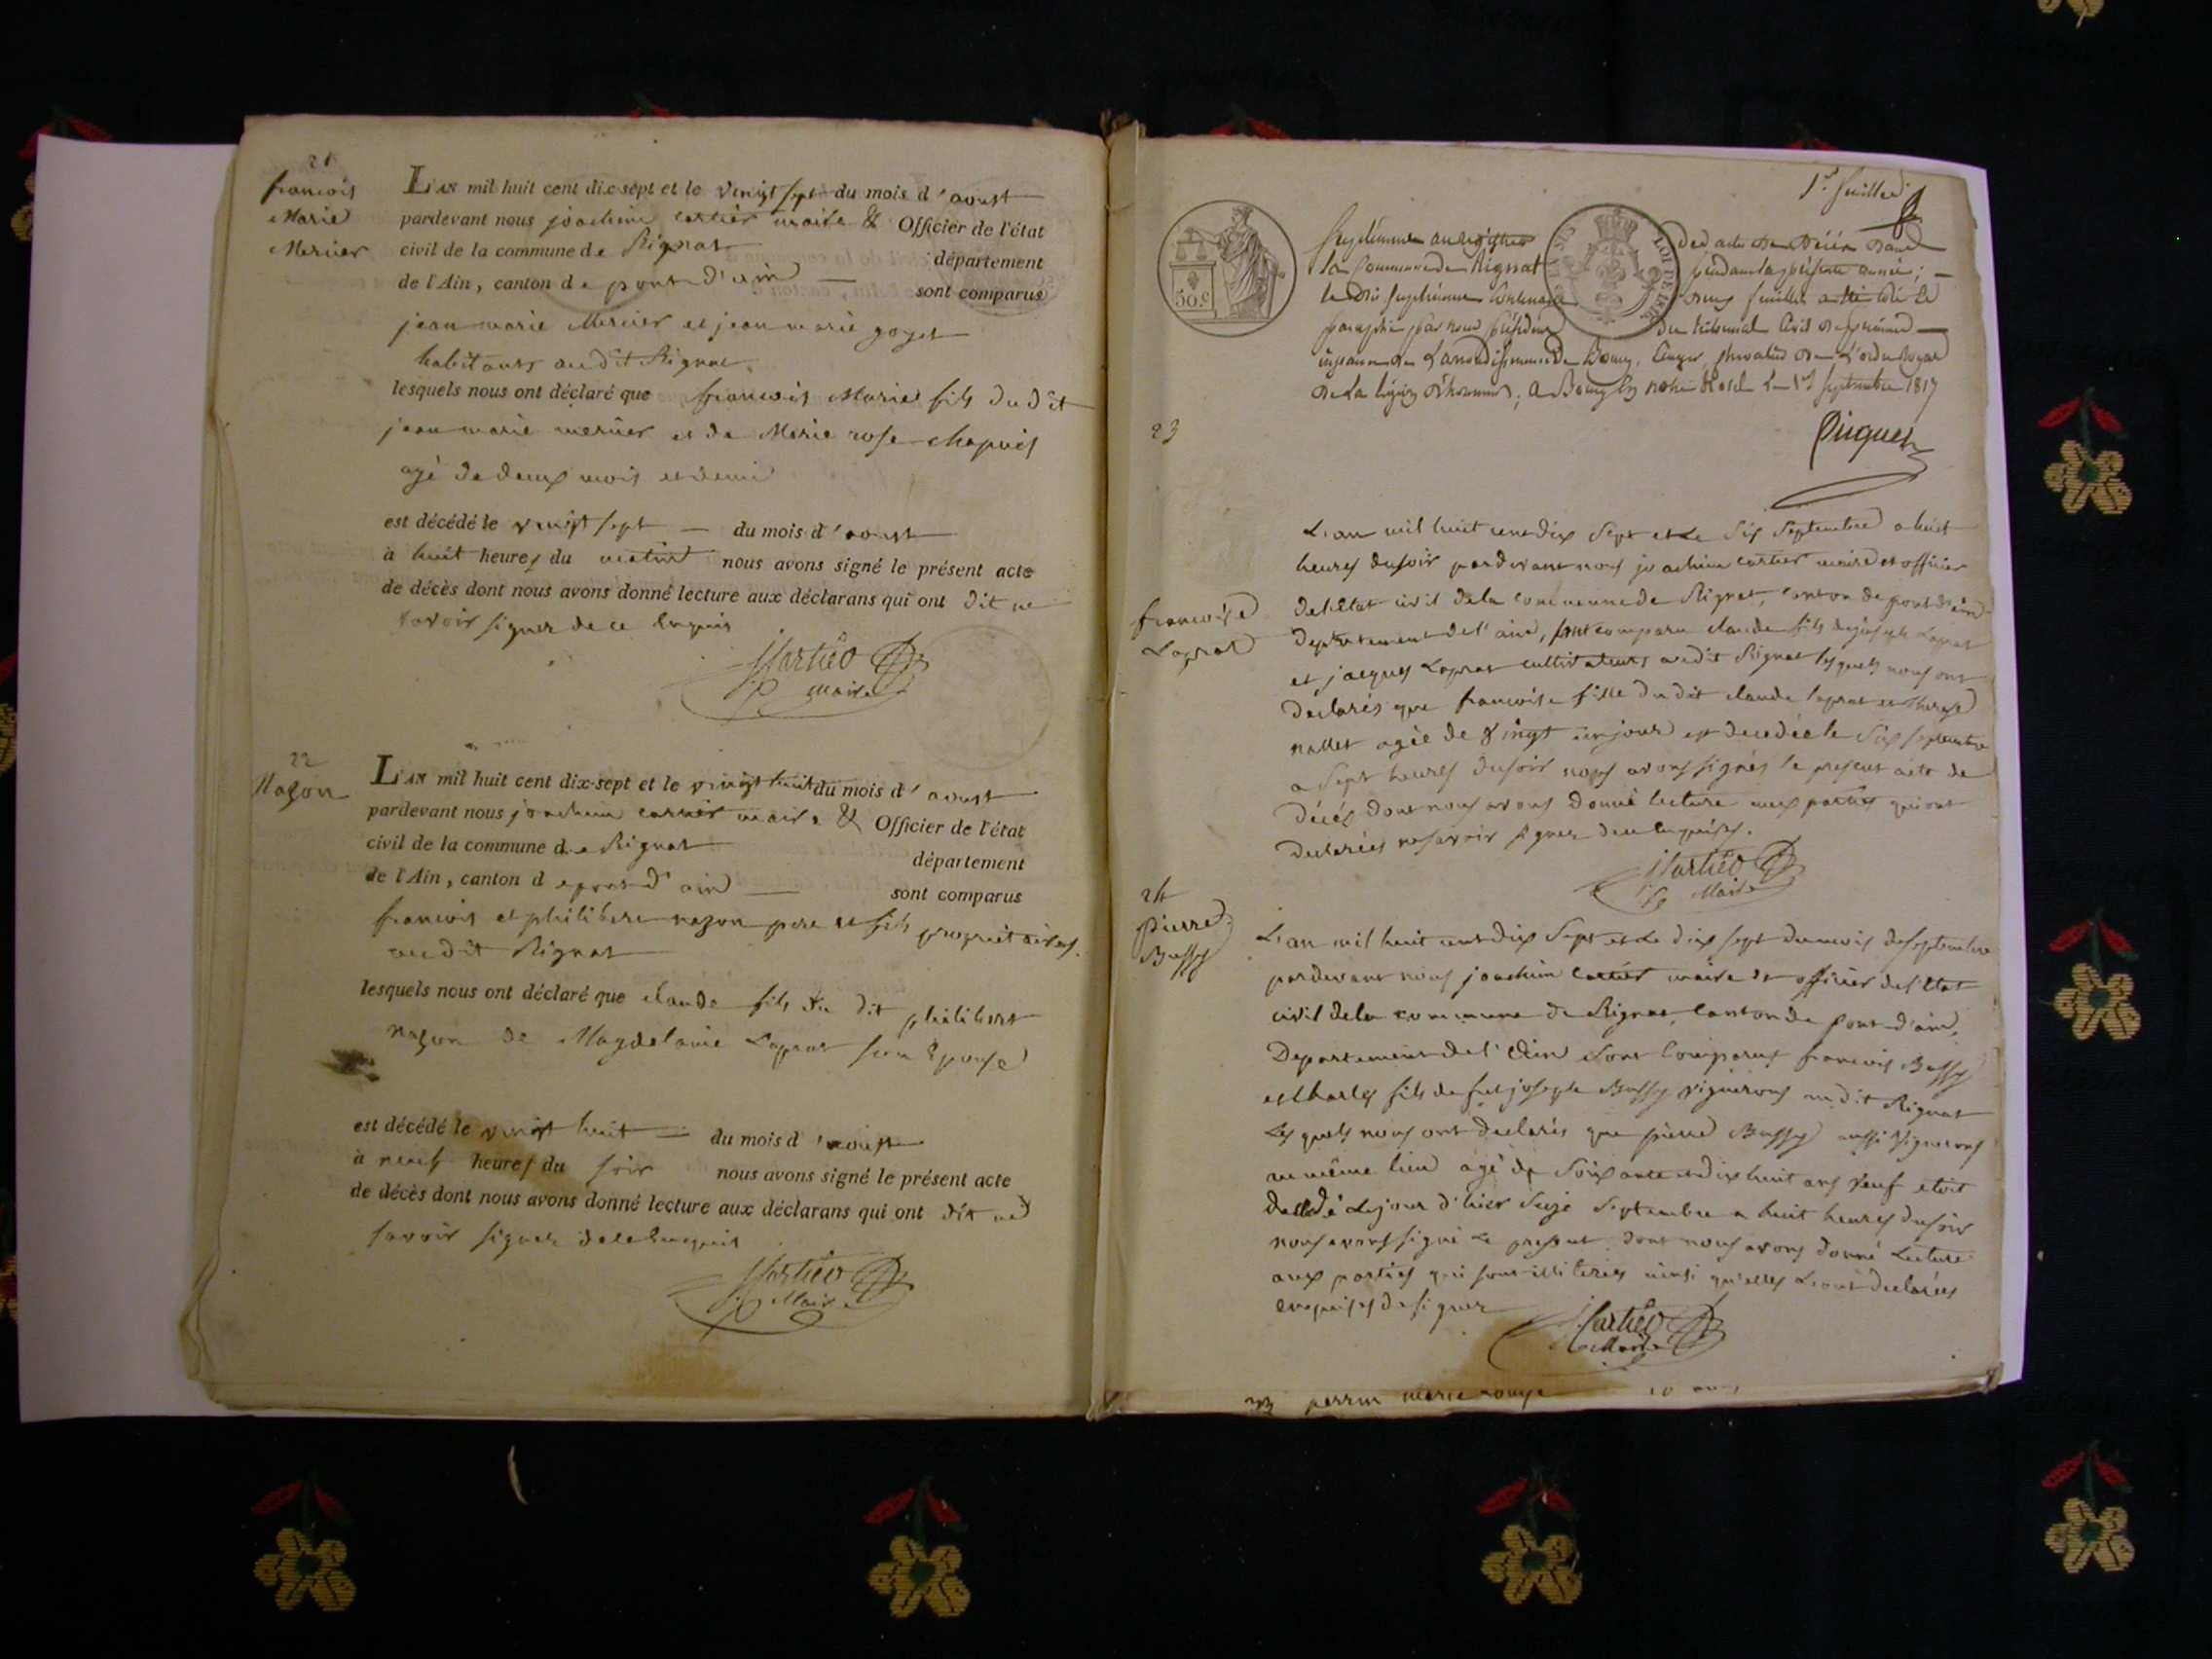 21
francois
Marie
Mercier
L'AN mil huit cent dix-sept et le vingt sept du mois d'aoust
pardevant nous joachim cartier maire & Officier de l'état
civil de la commune de Rignat
département
de l'Ain, canton de pont d'ain
sont comparus
jean marie Mercier et jean marie goyet
habitants audit Rignat
lesquels nous ont déclaré que francois Marie fils du dit
jean marie mercier et de Marie rose chapuis
agé de deux mois et demi
est décédé le vingt sept du mois d'aoust
à huit heures du matin nous avons signé le présent acte
de décès dont nous avons donné lecture aux déclarans qui ont dit ne
savoir signer de ce enquis
J Cartier
maire
22
Nazon
L'AN mil huit cent dix-sept et le vingt huit du mois d'aoust
pardevant nous joachim cartier maire & Officier de l'état
civil de la commune de Rignat
département
de l'Ain, canton de pont d'ain
sont comparus
francois et philibert nazon pere et fils propriétaires
audit Rignat
lesquels nous ont déclaré que claude fils du dit philibert
nazon de Magdelaine Laprat son Epouse
est décédé le vingt huit du mois d'aoust
à neuf heures du soir nous avons signé le présent acte
de décès dont nous avons donné lecture aux déclarans qui ont dit ne
savoir signer de ce enquis
J Cartier
Maire
1er feuillet
50 c
LOI DE 1816
Supplément au Registre des actes de Décès de
la Commune de Rignat pendant la présente année;
le dit supplément contenant deux feuillets a été coté et
paraphé par nous président du tribunal Civil de première
instance de l'arrondissement de Bourg, chevalier de l'ordre Royal
de la légion d'honneur; a Bourg en notre hôtel le septembre 1817
Puiguet
23
francoise
Laprat
L'an mil huit cent dix sept et le six septembre a huit
heures du soir pardevant nous joachim cartier maire et officier
de l'Etat civil de la commune de Rignat, canton de pont d'ain
departement de l'ain, sont comparu claude fils de joseph Laprat
et jacques Laprat cultivateurs audit Rignat lesquels nous ont
declarés que francoise fille du dit claude laprat et therese
nallet agée de vingt un jour est decedée le six septembre
a sept heures du soir nous avons signés le present acte de
décès dont nous avons donné lecture aux parties qui ont
declarées ne savoir signer de ce enquises.
J Cartier
Maire
24
Pierre
Bussy
L'an mil huit cent dix sept et le dix sept du mois de septembre
pardevant nous joachim cartier maire et officier de l'Etat
civil de la commune de Rignat, canton de pont d'ain,
Departement de l'Ain sont comparus francois Bussy
et charles fils de feu joseph Bussy vignerons audit Rignat
Lesquels nous ont declarés que pierre Bussy aussi vignerons
au même lieu agé de soixante et dix huit ans veuf etoit
decedé le jour d'hier seize septembre a huit heures du soir
nous avons signé le present dont nous avons donné Lecture
aux parties qui sont illiterés ainsi qu'elles l'ont declarées
enquises de signer
J Cartier
Maire
perrin marie 10 ans